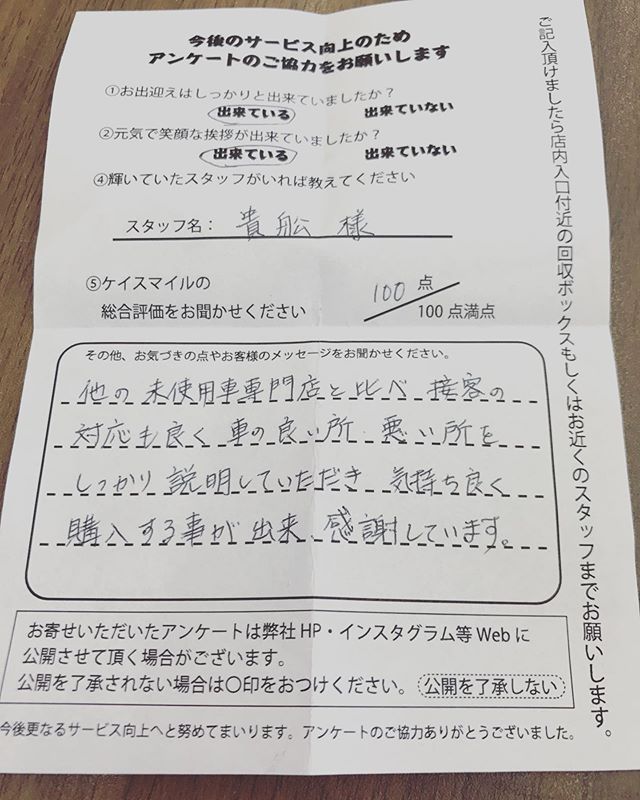 今後のサービス向上のため
アンケートのご協力をお願いします
①お出迎えはしっかりと出来ていましたか？
出来ている 出来ていない
②元気で笑顔な挨拶が出来ていましたか？
出来ている 出来ていない
④輝いていたスタッフがいれば教えてください
スタッフ名： 貴舩 様
⑤ケイスマイルの
総合評価をお聞かせください
100 点
100点満点
その他、お気づきの点やお客様のメッセージをお聞かせください。
他の未使用車専門店と比べ 接客の
対応も良く 車の良い所 悪い所を
しっかり説明していただき 気持ち良く
購入する事が出来 感謝しています。
お寄せいただいたアンケートは弊社HP・インスタグラム等Webに
公開させて頂く場合がございます。
公開を了承されない場合は〇印をおつけください。 公開を了承しない
今後更なるサービス向上へと努めてまいります。アンケートのご協力ありがとうございました。
ご記入頂けましたら店内入口付近の回収ボックスもしくはお近くのスタッフまでお願いします。